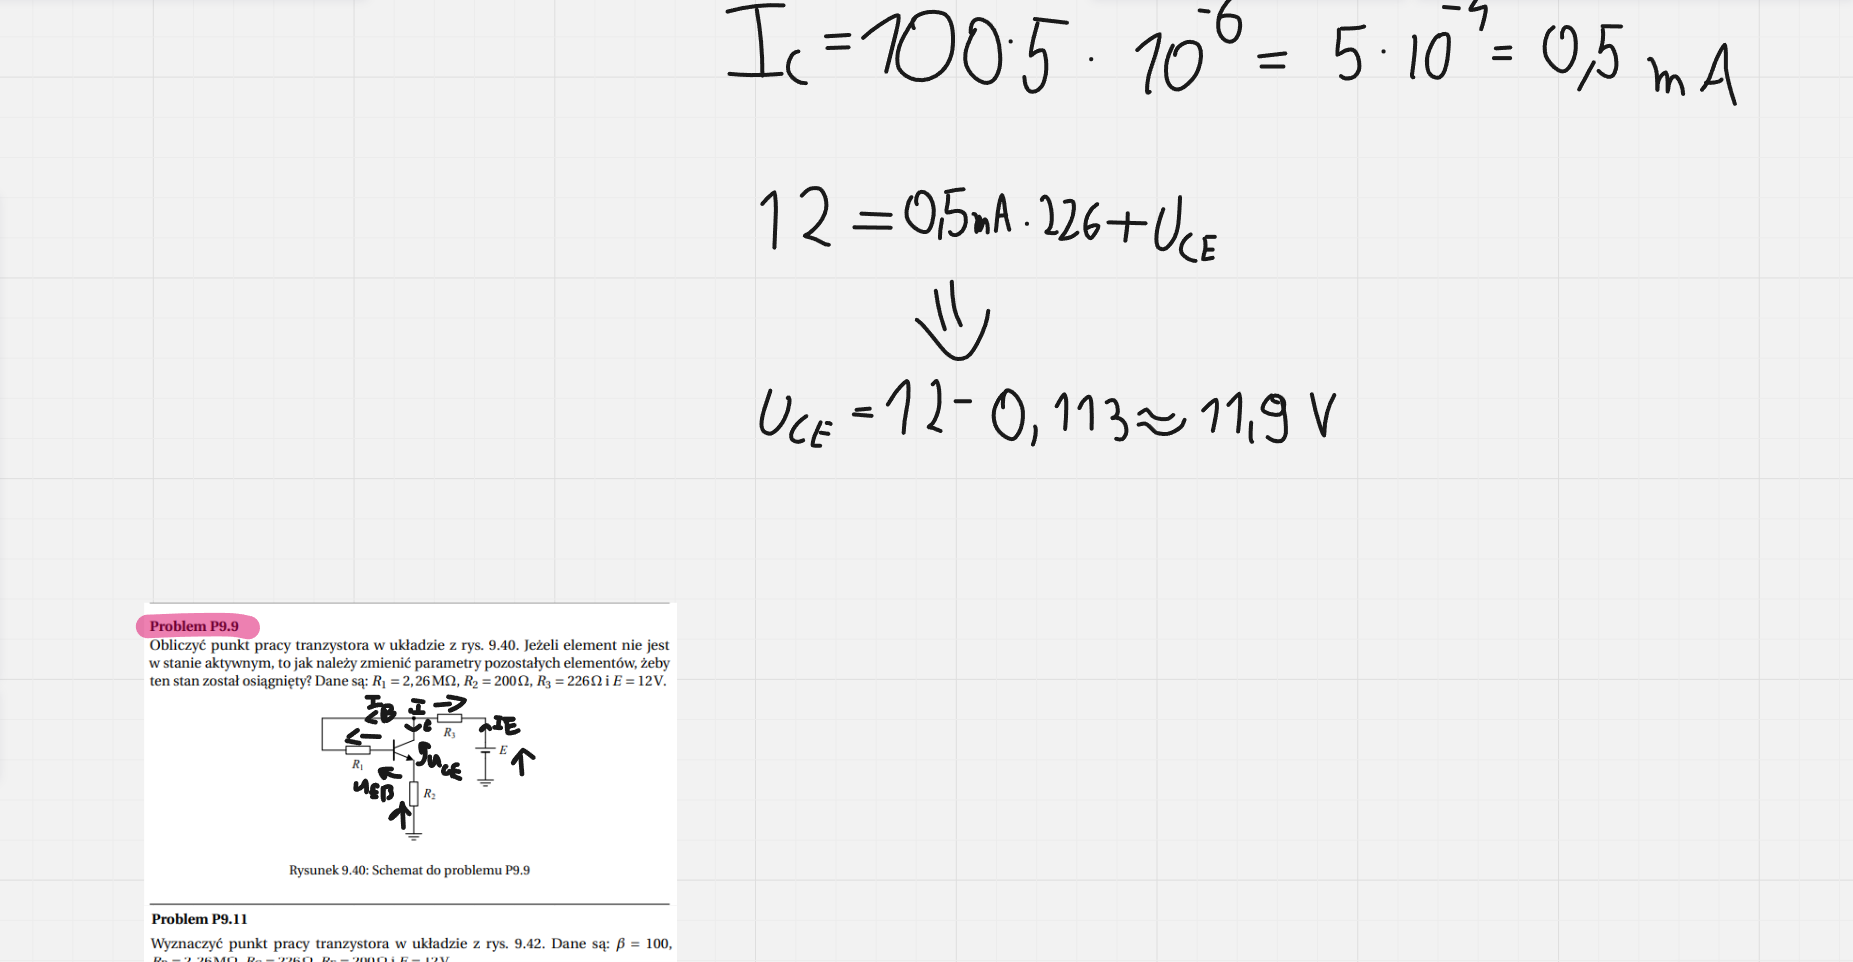 I_C = 100 · 5 · 10^-6 = 5 · 10^-4 = 0,5 mA
12 = 0,5mA · 226 + U_CE
⇓
U_CE = 12 - 0,113 ≈ 11,9 V
Problem P9.9
Obliczyć punkt pracy tranzystora w układzie z rys. 9.40. Jeżeli element nie jest
w stanie aktywnym, to jak należy zmienić parametry pozostałych elementów, żeby
ten stan został osiągnięty? Dane są: R₁ = 2,26 MΩ, R₂ = 200 Ω, R₃ = 226 Ω i E = 12 V.
I_B I
I_E
R₃
E
R₁
U_CE
U_EB
R₂
Rysunek 9.40: Schemat do problemu P9.9
Problem P9.11
Wyznaczyć punkt pracy tranzystora w układzie z rys. 9.42. Dane są: β = 100,